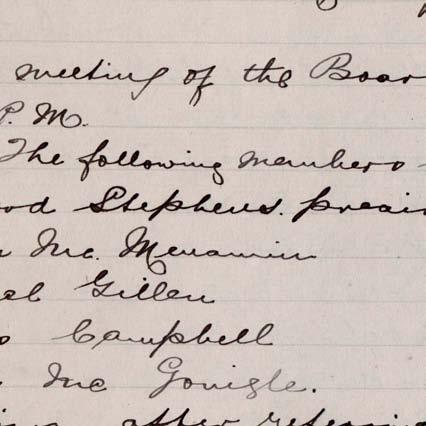 meeting of the Boar
P. M.
The following members
ord Stephens. presi
n Mc. Menamin
el Gillen
o Campbell
Mc Gonigle.
after